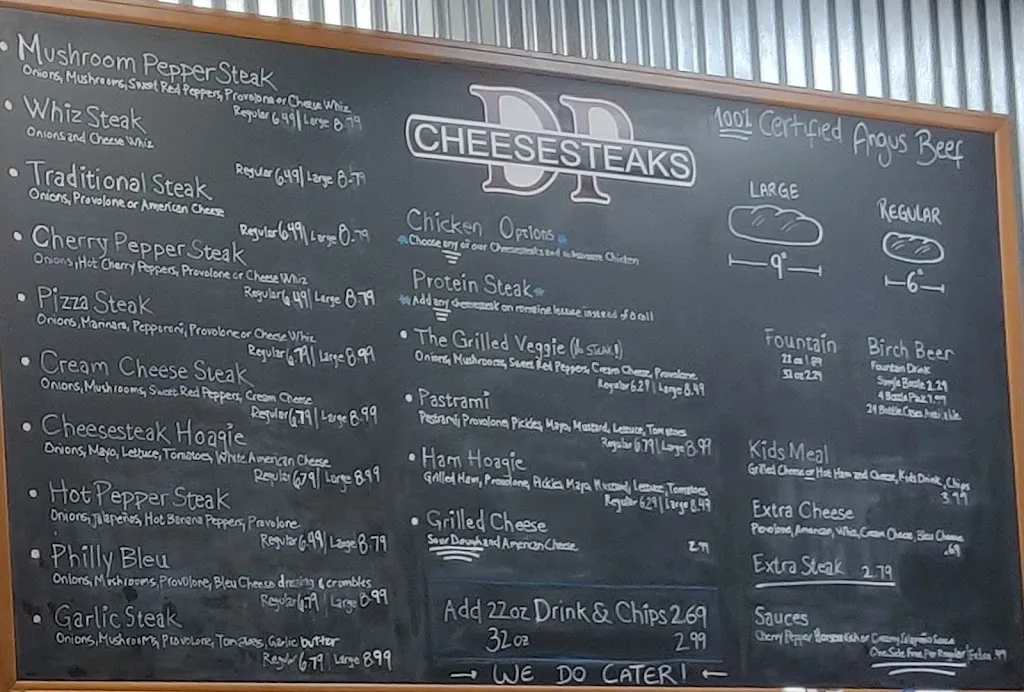 Mushroom Pepper Steak
Onions, Mushrooms, Sweet Red Peppers, Provolone or Cheese Whiz
Regular 6.49 | Large 8.79
Whiz Steak
Onions and Cheese Whiz
Regular 6.49 | Large 8.79
Traditional Steak
Onions, Provolone or American Cheese
Regular 6.49 | Large 8.79
Cherry Pepper Steak
Onions, Hot Cherry Peppers, Provolone or Cheese Whiz
Regular 6.49 | Large 8.79
Pizza Steak
Onions, Marinara, Pepperoni, Provolone or Cheese Whiz
Regular 6.79 | Large 8.99
Cream Cheese Steak
Onions, Mushrooms, Sweet Red Peppers, Cream Cheese
Regular 6.79 | Large 8.99
Cheesesteak Hoagie
Onions, Mayo, Lettuce, Tomatoes, White American Cheese
Regular 6.79 | Large 8.99
Hot Pepper Steak
Onions, Jalapeños, Hot Banana Peppers, Provolone
Regular 6.49 | Large 8.79
Philly Bleu
Onions, Mushrooms, Provolone, Bleu Cheese dressing & crumbles
Regular 6.79 | Large 8.99
Garlic Steak
Onions, Mushrooms, Provolone, Tomatoes, Garlic butter
Regular 6.79 | Large 8.99
DP
CHEESESTEAKS
Chicken Options
Choose any of our Cheesesteaks and Chicken
Protein Steak
Add any cheesesteak on romaine lettuce instead of a roll
The Grilled Veggie (No Steak!)
Onions, Mushrooms, Sweet Red Peppers, Cream Cheese, Provolone
Regular 6.29 | Large 8.49
Pastrami
Pastrami, Provolone, Pickles, Mayo, Mustard, Lettuce, Tomatoes
Regular 6.79 | Large 8.99
Ham Hoagie
Grilled Ham, Provolone, Pickles, Mayo, Mustard, Lettuce, Tomatoes
Regular 6.29 | Large 8.49
Grilled Cheese
Sour Dough and American Cheese
Add 22oz Drink & Chips 2.69
32oz 2.99
WE DO CATER!
100% Certified Angus Beef
LARGE
9"
REGULAR
6"
Fountain
22 oz
32 oz
Birch Beer
Fountain Drink
Single Bottle 2.29
4 Bottle Pack 7.99
24 Bottle Cases
Kids Meal
Grilled Cheese or Hot Ham and Cheese, Kids Drink, Chips
3.99
Extra Cheese
Provolone, American, Whiz, Cream Cheese, Bleu Cheese
.69
Extra Steak 2.79
Sauces
Cherry Pepper Horseradish or Creamy Jalapeño Sauce
One Side Free Per Regular | Extra .49